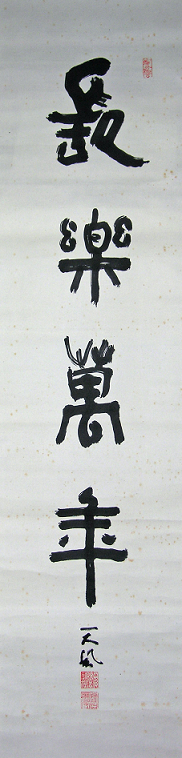 長樂萬年
天風